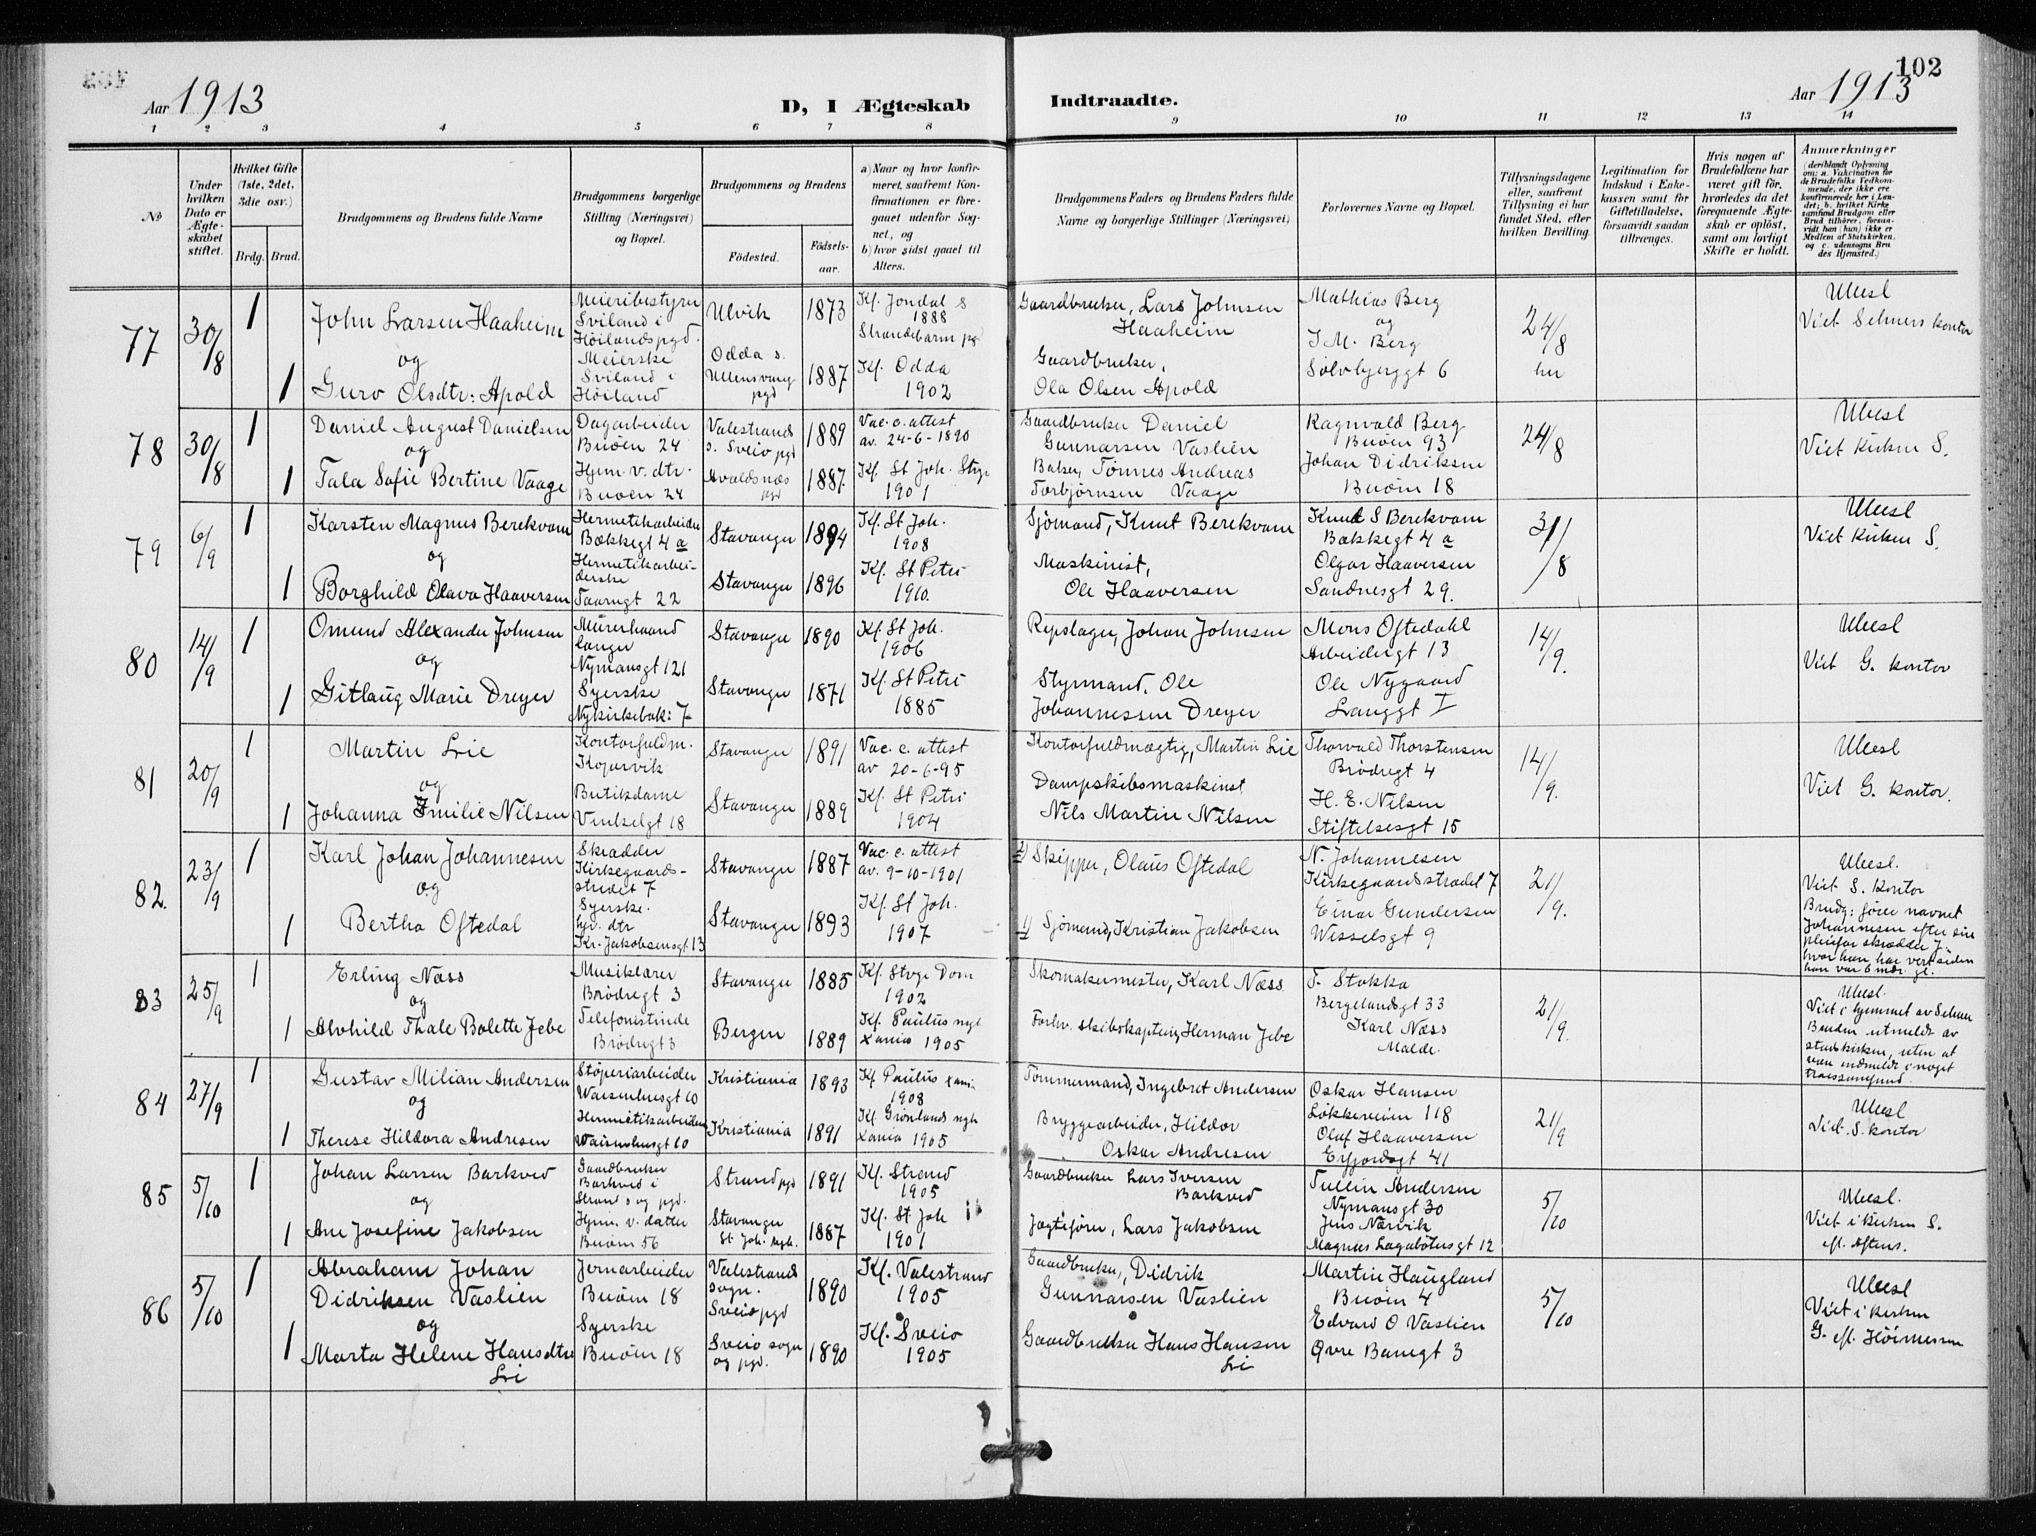 102
Aar 1913
D, I Ægteskab Indtraadte.
Aar 1913
1 2 3 4 5 6 7 8 9 10 11 12 13 14
No
Under hvilken Dato er Ægteskabet stiftet.
Hvilket Gifte (1ste, 2det, 3die osv.)
Brdg. Brud.
Brudgommens og Brudens fulde Navne
Brudgommens borgerlige Stilling (Næringsvei) og Bopæl.
Brudgommens og Brudens
Födested.
Födsels-aar.
a) Naar og hvor konfirmeret, saafremt Konfirmationen er foregaaet udenfor Sognet, og
b) hvor sidst gaaet til Alters.
Brudgommens Faders og Brudens Faders fulde Navne og borgerlige Stillinger (Næringsvei)
Forlovernes Navne og Bopæl.
Tillysningsdagene eller, saafremt Tillysning ei har fundet Sted, efter hvilken Bevilling.
Legitimation for Indskud i Enkekassen samt for Giftetilladelse, forsaavidt saadan tiltrænges.
Hvis nogen af Brudefolkene har været gift för, hvorledes da det foregaaende Ægteskab er oplöst, samt om lovligt Skifte er holdt.
Anmærkninger
(deriblandt Oplysning om: a. Vakcination for de Brudefolks Vedkommende, der ikke ere konfirmerede her i Landet; b. hvilket Kirkesamfund Brudgom eller Brud tilhörer, forsaavidt han (hun) ikke er Medlem af Statskirken, og c. udensogns Brudes Hjemsted.)
77
30/8
1
John Larsen Haaheim
og
1
Guro Olsdtr: Apold
Meieribestyrer
Sviland i
Höilands pgd.
Meierske
Sviland i
Höiland
Ulvik 1873
Odda s.
Ullensvang pgd 1887
Kf. Jondal s
1888
Strandebarm pgd
Kf. Odda
1902
Gaardbruker, Lars Johnsen
Haaheim
Gaardbruker,
Ola Olsen Apold
Mathias Berg
og
I M. Berg
Sölvbjerggt 6
24/8
her
Ubesl
Viet Selmers kontor
78
30/8
1
Daniel August Danielsen
og
1
Tala Sofie Bertine Vaage
Dagarbeider
Buöen 24
Hjem. v. dtr.
Buöen 24
Valestrands
s. Sveio pgd 1889
Avaldsnæs pgd 1887.
Vac. c. attest
av. 24-6-1890
Kf. St Joh. Stvgr
1901
Gaardbruker Daniel
Gunnarsen Vaslien
Baker, Tönnes Andreas
Torbjörnsen Vaage
Ragnvald Berg
Buöen 93
Johan Didriksen
Buöen 18
24/8
Ubesl
Viet Kirken S.
79
6/9
1
Karsten Magnus Berekvam
og
1
Borghild Olava Haaversen
Hermetikarbeider
Bækkegt 4 a
Hermetikarbei-
derske
Taarngt 22
Stavanger 1894
Stavanger 1896
Kf. St Joh.
1908
Kf. St Petri
1910.
Sjömand, Knut Berekvam
Maskinist,
Ole Haaversen
Knut S Berekvam
Bækkegt 4 a
Olgar Haaversen
Sandnesgt 29.
31/8
Ubesl
Viet Kirken S.
80
14/9
1
Omund Alexander Johnsen
og
1
Gitlaug Marie Dreyer
Murerhaand
langer
Nymansgt 121
Syerske
Nykirkebak: 7
Stavanger 1890
Stavanger 1871
Kf. St Joh.
1906
Kf. St Petri
1885
Repslager, Johan Johnsen
Styrmand, Ole
Johannessen Dreyer
Mons Oftedahl
Arbeidergt 13
Ole Nygaard
Langgt I
14/9.
Ubesl
Viet G. kontor
81
20/9
1
Martin Lie
og
1
Johanna Emilie Nilsen
Kontorfuldm.
Kopervik
Butikdame
Vinkelgt 18
Stavanger 1891
Stavanger 1889
Vac. c. attest
av 20-6-95
Kf. St Petri
1904
Kontorfuldmægtig, Martin Lie
Dampskibsmaskinist
Nils Martin Nilsen
Thorvald Thorstensen
Brödregt 4
H. E. Nilsen
Stiftelsesgt 15
14/9.
Ubesl
Viet G. kontor.
82.
23/9
1
Karl Johan Johannesen
og
1
Bertha Oftedal
Skrædder
Kirkegaard-
strædet 7
Syerske.
hjv. dtr
Kr. Jakobsensgt 13
Stavanger 1887
Stavanger 1893
Vac. c. attest
av. 9-10-1901
Kf. St Joh.
1907
2) Skipper, Olaus Oftedal
1) Sjömand, Kristian Jakobsen
N. Johannesen
Kirkegaardstrædet 7
Einar Gundersen
Wesselsgt 9
21/9.
Ubesl.
Viet S. kontor
Brudg: förer navnet
Johannesen efter sin
pleiefar skrædder J.
hvor han har vert siden
han var 6 mdr. gl.
83
25/9
1
Erling Næss
og
1
Alvhild Thale Bolette Jebe
Musiklærer
Brödregt 3
Telefonistinde
Brödregt 3
Stavanger 1885
Bergen 1889
Kf. Stvgr Dom
1902
Kf. Paulus mgh
Xania 1905
Skomakermester, Karl Næss
Forhv. skibskaptein, Herman Jebe
T. Stokka
Bergelandsgt 33
Karl Næss
Malde.
21/9.
Ubesl.
Viet i hjemmet av Selmer
Bruden utmeldt av
statskirken, uten at
være indmeldt i noget
trossamfund.
84
27/9
1
Gustav Milian Andersen
og
1
Therese Hildora Andresen
Stöperiarbeider
Vaisenhusgt 60
Hermetikarbeiderske
Vaisenhusgt 60
Kristiania 1893
Kristiania 1891
Kf Paulus Xania
1908
Kf. Grönlands mgh
Xania 1905
Tömmermand, Ingebret Andersen
Bryggearbeider, Hildor
Oskar Andresen
Oskar Hansen
Lökkeveien 118
Olaf Haaversen
Erfjordsgt 41
21/9
Ubesl
Viet. S. kontor
85
5/10
1
Johan Larsen Barkved
og
1
Ane Josefine Jakobsen
Gaardbruker
Barkved i
Strand s og pgd.
Hjem. v. datter
Buöen 56
Strand pgd 1891
Stavanger
St. Joh. mgh. 1887
Kf. Strand
1905
Kf. St Joh
1901
Gaardbruker Lars Iversen
Barkved
Jagtefører, Lars Jakobsen
Tullin Andersen
Nymansgt 30
Jens Narvik
Magnus Lagabötersgt 12
5/10
Ubesl.
Viet i kirken S.
ef. Aftens.
86
5/10
1
Abraham Johan
Didriksen Vaslien
og
1
Marta Helene Hansdtr
Lie
Jernarbeider
Buöen 18
Syerske
Buöen 18
Valestrands
sogn.
Sveio pgd 1890
Sveio sogn
og pgd. 1890
Kf. Valestrand
1905
Kf. Sveio
1905
Gaardbruker, Didrik
Gunnarsen Vaslien
Gaardbruker Hans Hansen
Lie
Martin Haugland
Buöen 4
Edvard O Vaslien
Övre Banegt 3
5/10
Ubesl
Viet i kirken
G. ef. Höimessen